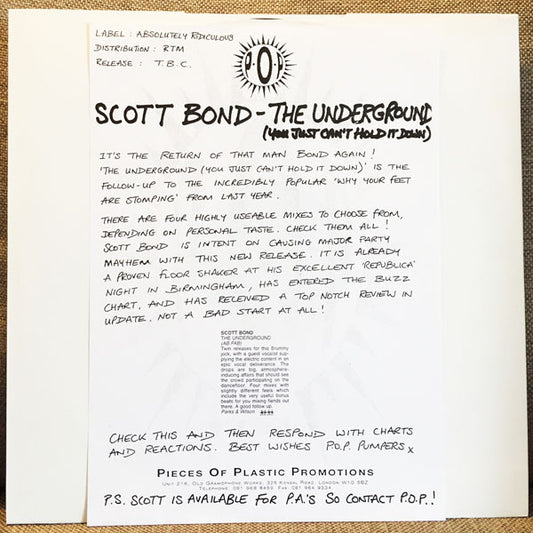 LABEL : ABSOLUTELY RIDICULOUS
DISTRIBUTION : RTM
RELEASE : T.B.C.
P.O.P.
SCOTT BOND - THE UNDERGROUND
(YOU JUST CAN'T HOLD IT DOWN)
IT'S THE RETURN OF THAT MAN BOND AGAIN!
'THE UNDERGROUND (YOU JUST CAN'T HOLD IT DOWN)' IS THE
FOLLOW-UP TO THE INCREDIBLY POPULAR 'WHY YOUR FEET
ARE STOMPING' FROM LAST YEAR.
THERE ARE FOUR HIGHLY USEABLE MIXES TO CHOOSE FROM,
DEPENDING ON PERSONAL TASTE. CHECK THEM ALL!
SCOTT BOND IS INTENT ON CAUSING MAJOR PARTY
MAYHEM WITH THIS NEW RELEASE. IT IS ALREADY
A PROVEN FLOOR SHAKER AT HIS EXCELLENT 'REPUBLICA'
NIGHT IN BIRMINGHAM, HAS ENTERED THE BUZZ
CHART, AND HAS RECEIVED A TOP NOTCH REVIEW IN
UPDATE. NOT A BAD START AT ALL!
SCOTT BOND
THE UNDERGROUND
(AB FAB)
Twin releases for this Brummy
jock, with a guest vocalist sup-
plying the electric content in an
epic vocal deliverance. The
drops are big, atmosphere-
inducing affairs that should see
the crowd participating on the
dancefloor. Four mixes with
slightly different feels which
include the very useful bonus
beats for you mixing fiends out
there. A good follow up.
Parks & Wilson
CHECK THIS AND THEN RESPOND WITH CHARTS
AND REACTIONS. BEST WISHES P.O.P. PUMPERS x
PIECES OF PLASTIC PROMOTIONS
UNIT 216, OLD GRAMOPHONE WORKS, 326 KENSAL ROAD, LONDON W10 5BZ
TELEPHONE: 081 968 8459 FAX: 081 964 9334
P.S. SCOTT IS AVAILABLE FOR P.A.'S SO CONTACT P.O.P.!